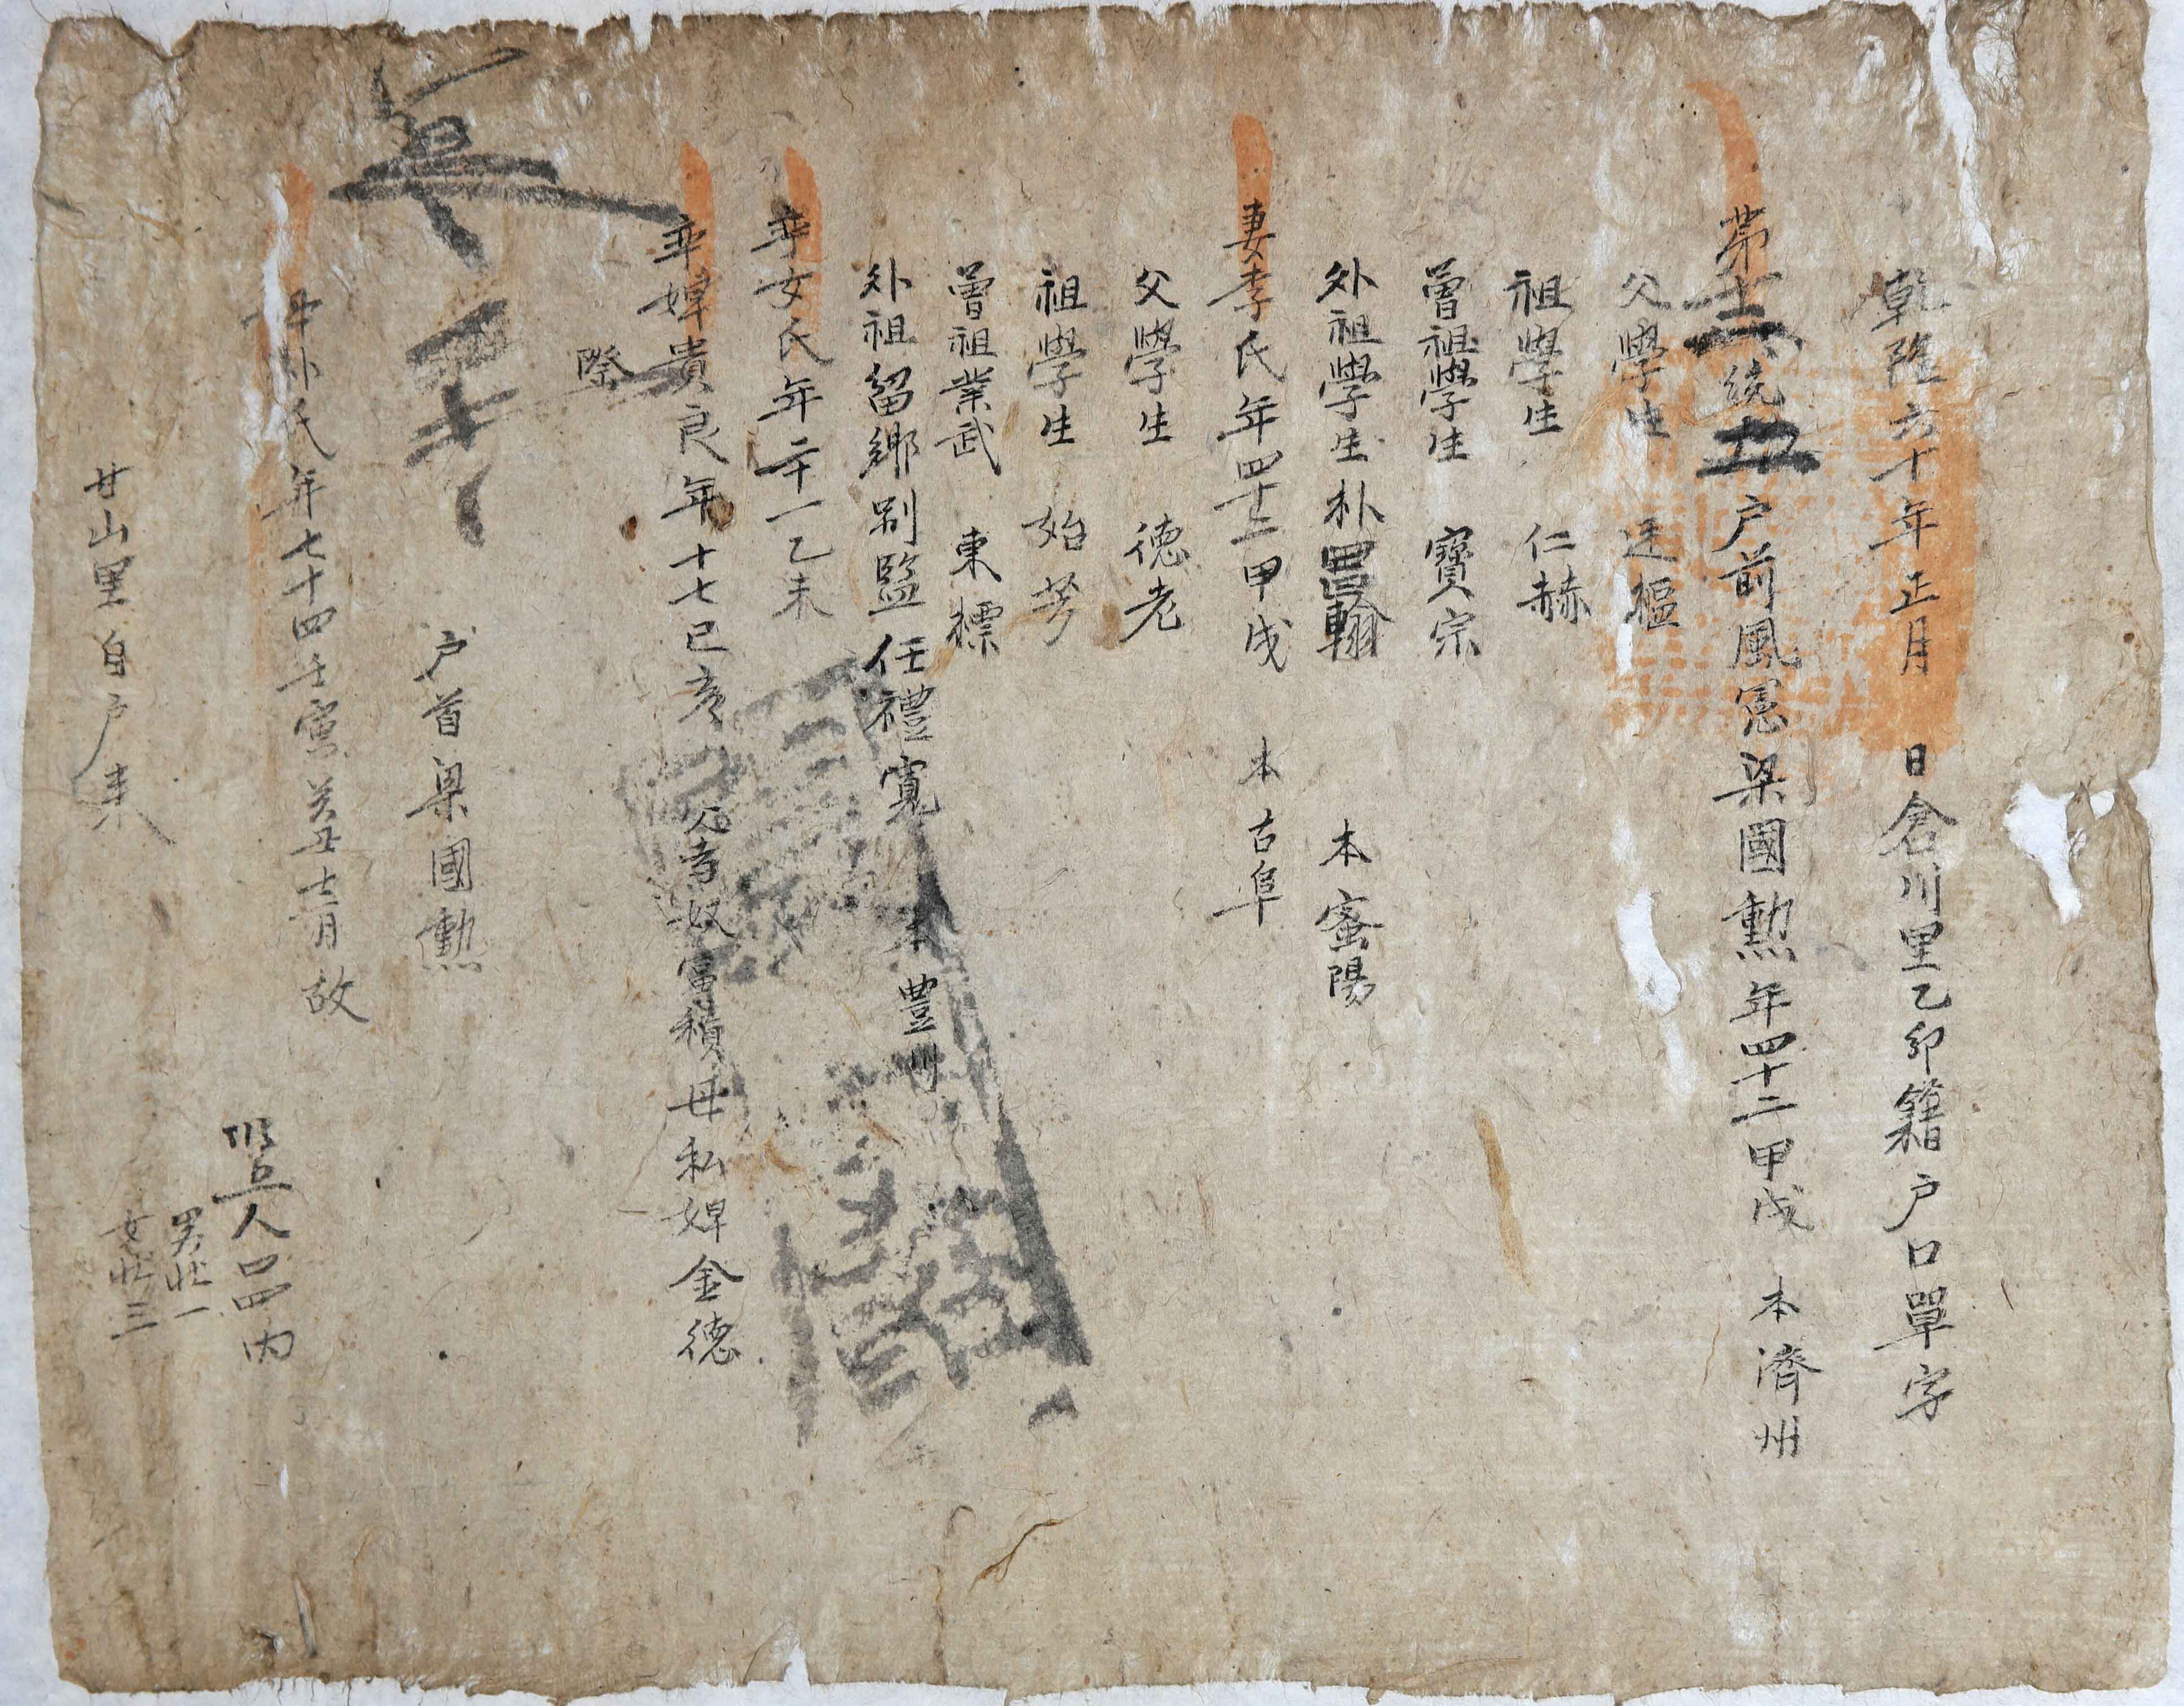 乾隆六十年正月 日倉川里乙卯籍戶口單字
第十二統 戶前風憲梁國勲年四十二甲戌 本濟州
父學生 廷樞
祖學生 仁赫
曾祖學生 寶宗
外祖學生朴昌翰 本蜜陽
妻李氏年四十二甲戌 本古阜
父學生 德老
祖學生 始芳
曾祖業武 東標
外祖留鄕别監任禮寬 本豊川
率女氏年二十一乙未
率婢貴良年十七己亥 父寺奴富積母私婢金德
際
戶首梁國勲
母朴氏年七十四壬寅癸丑十二月故
人口四內
男壯一
女壯三
廿山里自戶來